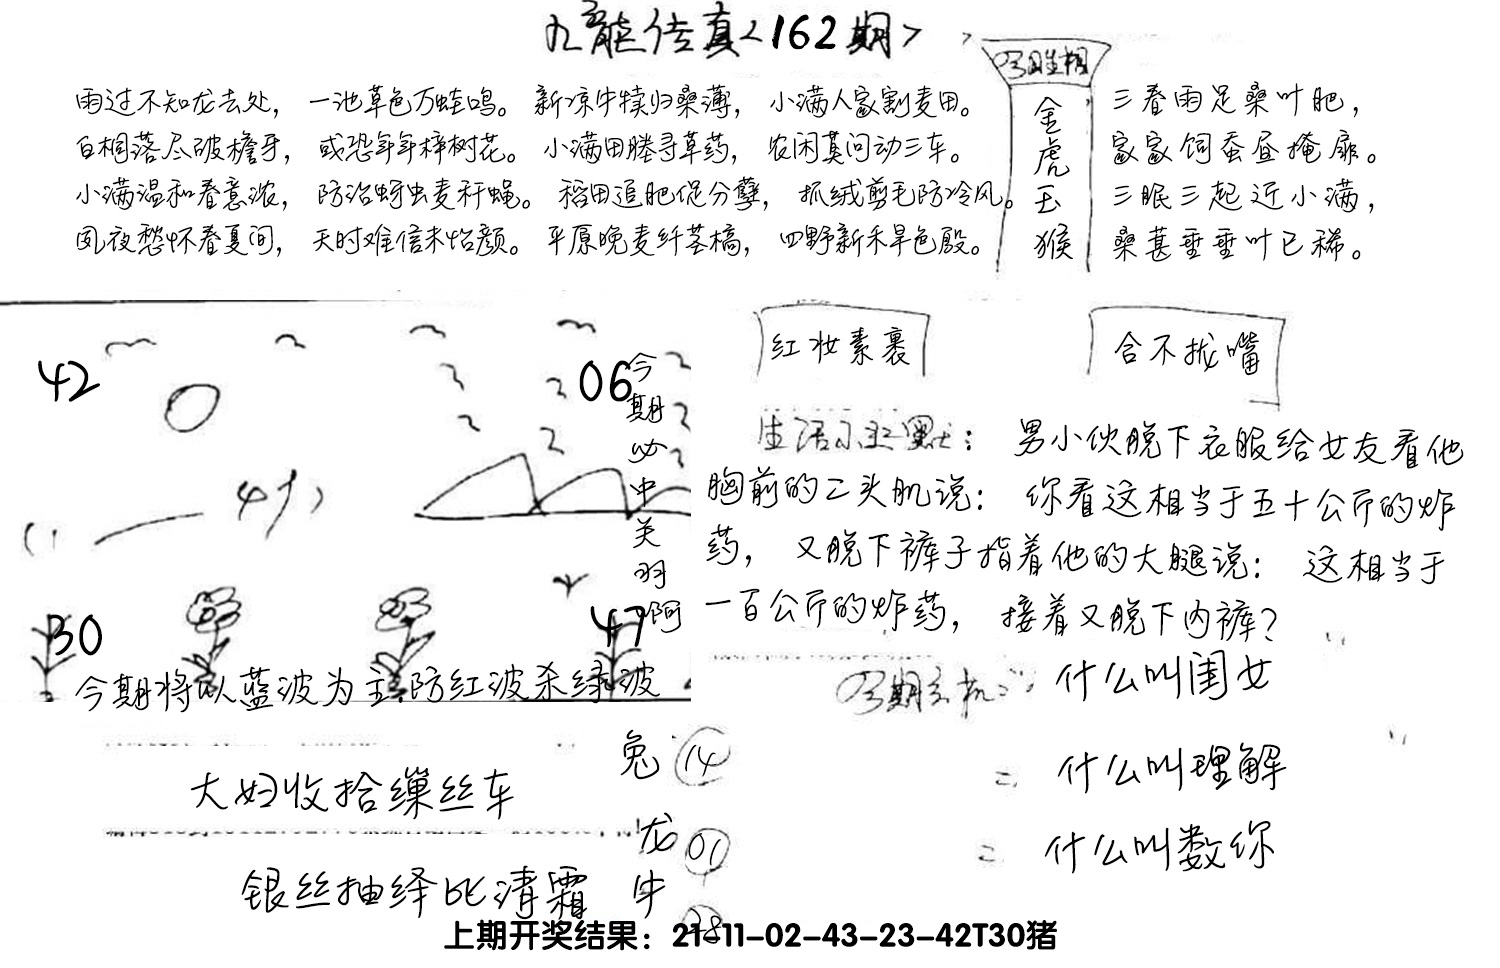 九龍传真<162期>
雨过不知龙去处，一池草色万蛙鸣。新凉牛犊归桑薄，小满人家割麦田。
白桐落尽破檐牙，或恐年年梓树花。小满田塍寻草药，农闲莫问动三车。
小满温和春意浓，防治蚜虫麦秆蝇。稻田追肥促分孽，抓绒剪毛防冷风。
夙夜愁怀春夏间，天时难信未怡颜。平原晚麦纤茎槁，四野新禾旱色殷。
今期生相
金
虎
玉
猴
三春雨足桑叶肥，
家家饲蚕昼掩扉。
三眠三起近小满，
桑葚垂垂叶已稀。
42
06
30
47
今期必中关羽啊
今期将以蓝波为主防红波杀绿波
红妆素裹
合不拢嘴
生活小幽默：男小伙脱下衣服给女友看他
胸前的二头肌说：你看这相当于五十公斤的炸
药，又脱下裤子指着他的大腿说：这相当于
一百公斤的炸药，接着又脱下内裤？
今期玄机：什么叫闺女
= 什么叫理解
= 什么叫数你
大妇收拾缫丝车
银丝抽绎比清霜
兔 14
龙 01
牛 28
上期开奖结果：21-11-02-43-23-42T30猪